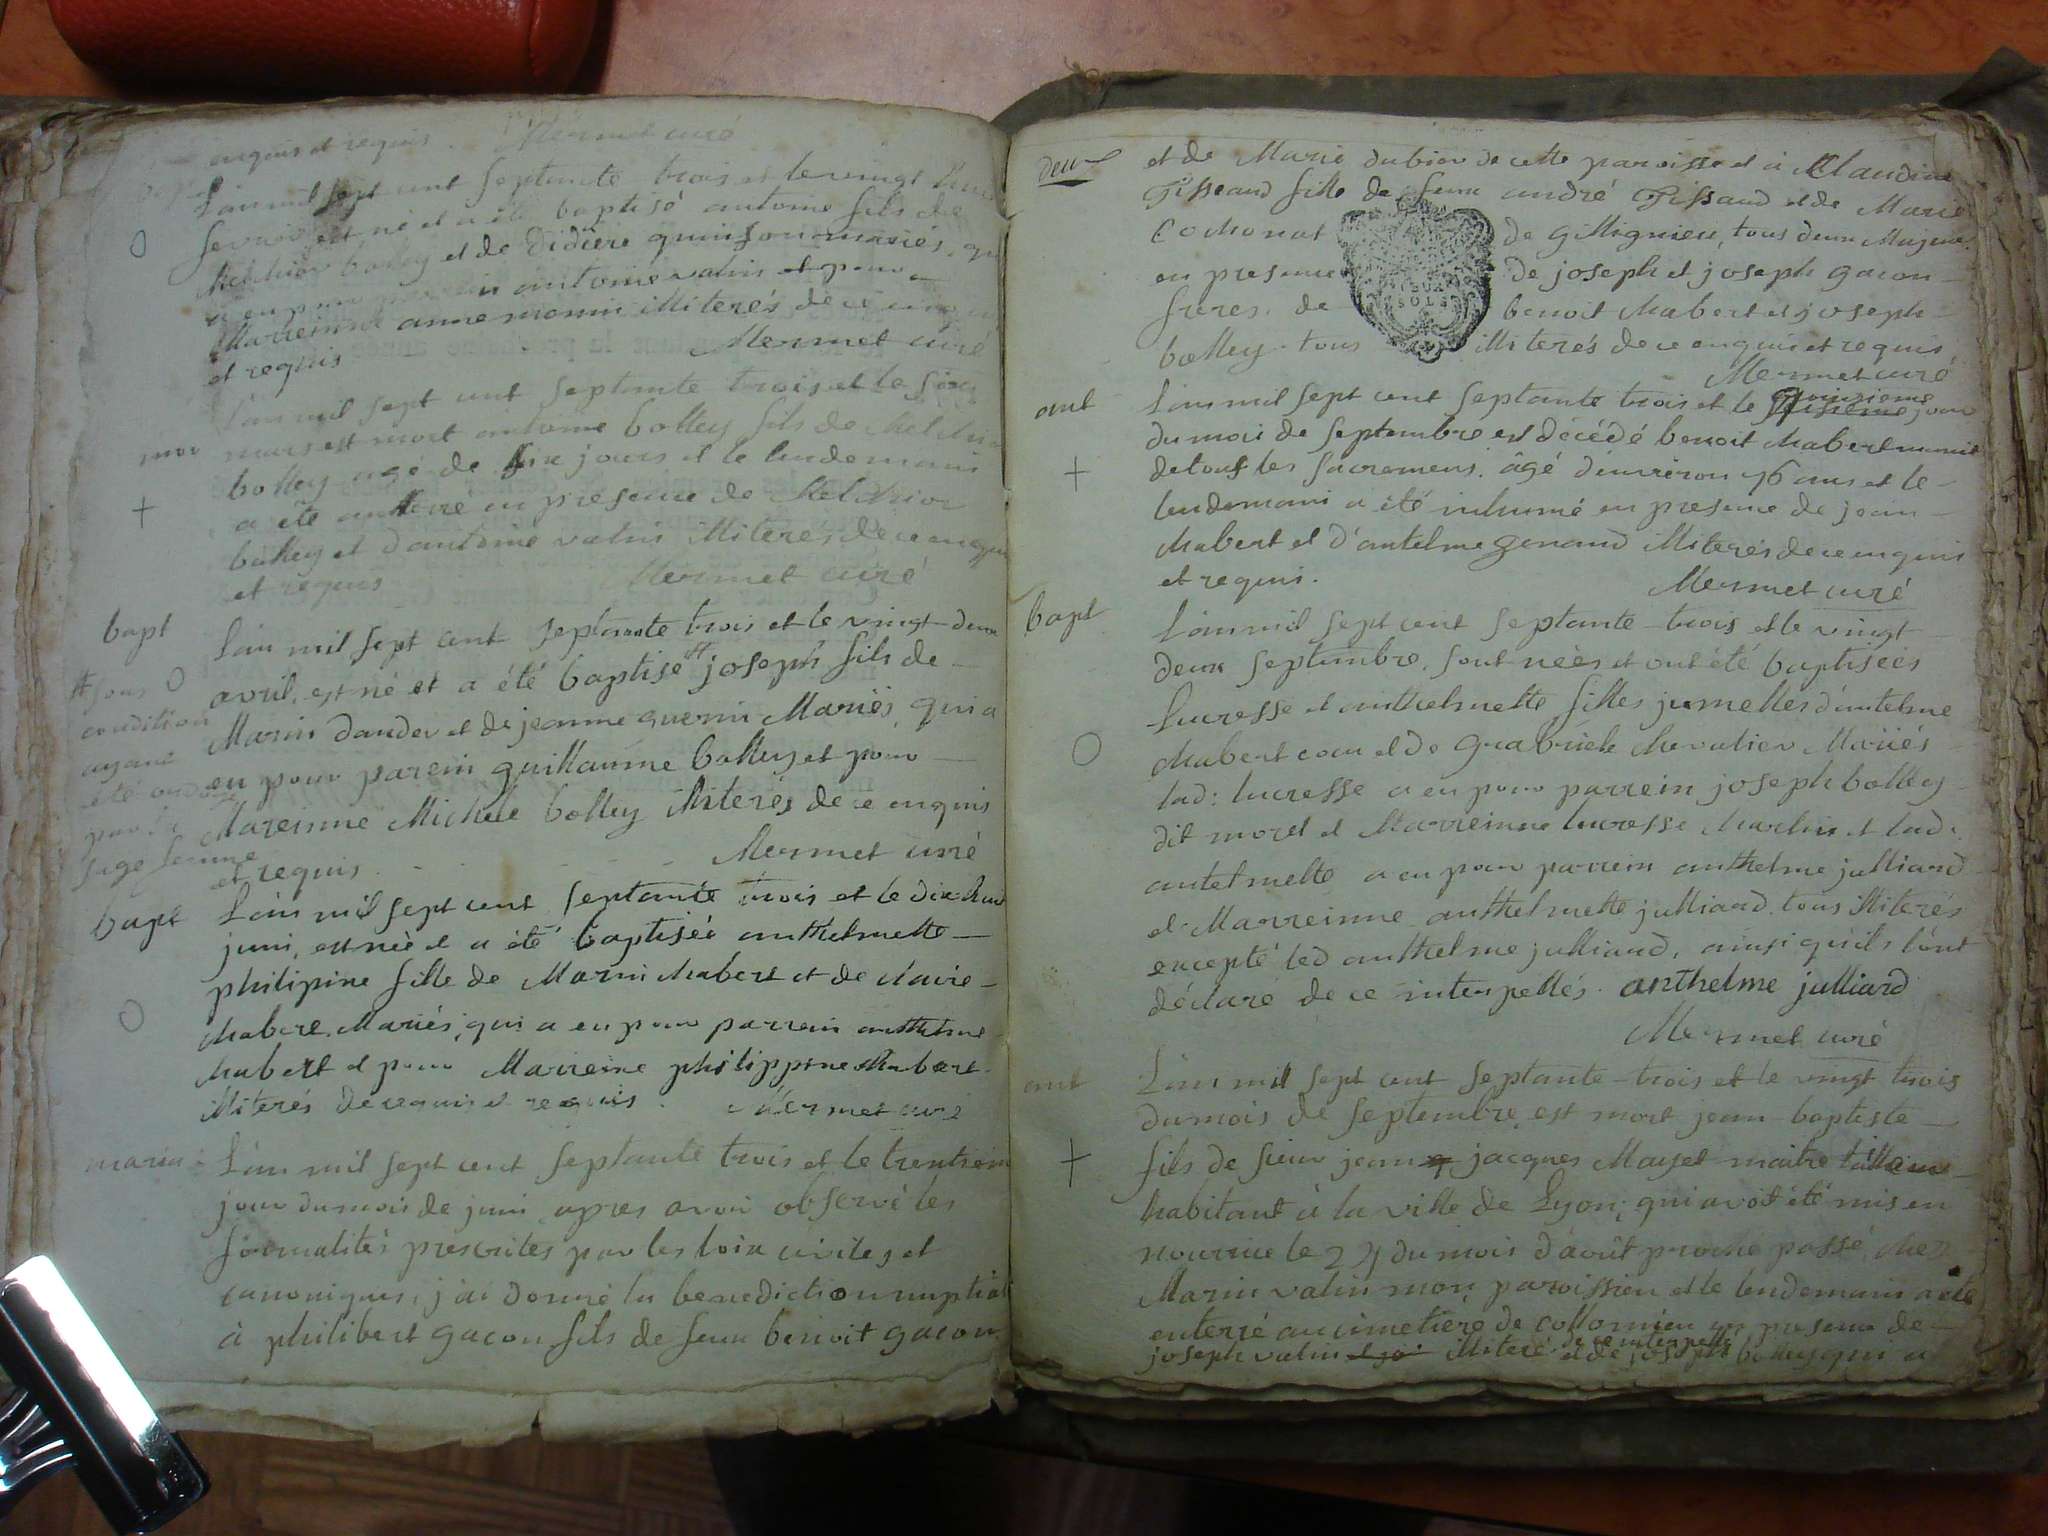 enquis et requis. Mermet curé
L'an mil sept cent septante trois et le vingt
fevrier est né et a été baptisé antoine fils de
Melchior bolley et de Didière quinson mariés, qui
a eu pour parrein antoine valin et pour
Marreinne anne monin illiterés de ce enquis
et requis Mermet curé
mor
L'an mil sept cent septante trois et le six
mars est mort antoine bolley fils de Melchior
bolley agé de six jours et le lendemain
a été enterré en presence de Melchior
bolley et d'antoine valin illiterés de ce enquis
et requis Mermet curé
bapt
L'an mil sept cent septante trois et le vingt-deux
avril, est né et a été baptisé # joseph fils de
Marin dander et de jeanne guenin Mariés, qui a
eu pour parein guillaume bolley et pour
Mareinne Michele bolley illiterés de ce enquis
et requis. Mermet curé
# sous
condition
ayant
été ondoié
par la
sage femme
bapt
L'an mil sept cent septante trois et le dix-huit
juin, est née et a été baptisée anthelmette
philipine fille de Marin chabert et de claire
chabert Mariés, qui a eu pour parrein anthelme
chabert et pour Marreine philippine chabert
illiterés de ce enquis et requis. Mermet curé
maria
L'an mil sept cent septante trois et le trentiem
jour du mois de juin apres avoir observé les
formalités prescrites par les loix civiles et
canoniques, j'ai donné la benediction nuptial
à philibert gacon fils de feu benoit gacon
deux
et de Marie dubier de cette paroisse et à Claudine
Tissaud fille de feu andré Tissaud et de Marie
Cochonat de gillignieu, tous deux Majeurs
en presence de joseph et joseph gacon
freres, de benoit chabert et joseph
bolley tous illiterés de ce enquis et requis
SOLS
Mermet curé
ent
L'an mil sept cent septante trois et le quinzieme jour
du mois de septembre est décédé benoit chabert munit
de touts les sacremens, âgé d'environ 76 ans et le
lendemain a été inhumé en presence de jean
chabert et d'antelme genand illiterés de ce enquis
et requis. Mermet curé
bapt
L'an mil sept cent septante-trois et le vingt
deux septembre, sont nées et ont été baptisées
lucresse et anthelmette filles jumelles d'antelme
chabert coeur et de grabriele chevalier Mariés
lad: lucresse a eu pour parrein joseph bolley
dit morel et Marreinne lucresse charlin et lad:
antelmette a eu pour parrein anthelme julliard
et Marreinne anthelmette julliard, tous illiterés
excepté led anthelme julliard, ainsi qu'ils l'ont
déclaré de ce interpellés. anthelme julliard
Mermet curé
ent
L'an mil sept cent septante-trois et le vingt trois
du mois de septembre est mort jean baptiste
fils de sieur jean jacques Mayet maitre tailleur
habitant à la ville de Lyon, qui avoit été mis en
nourrice le 24 du mois d'août proche passé, chez
Marin valin mon paroissien et le lendemain a été
enterré au cimetière de collomieu en presence de
de ce interpellé
joseph valin illiteré et de joseph bolley qui a